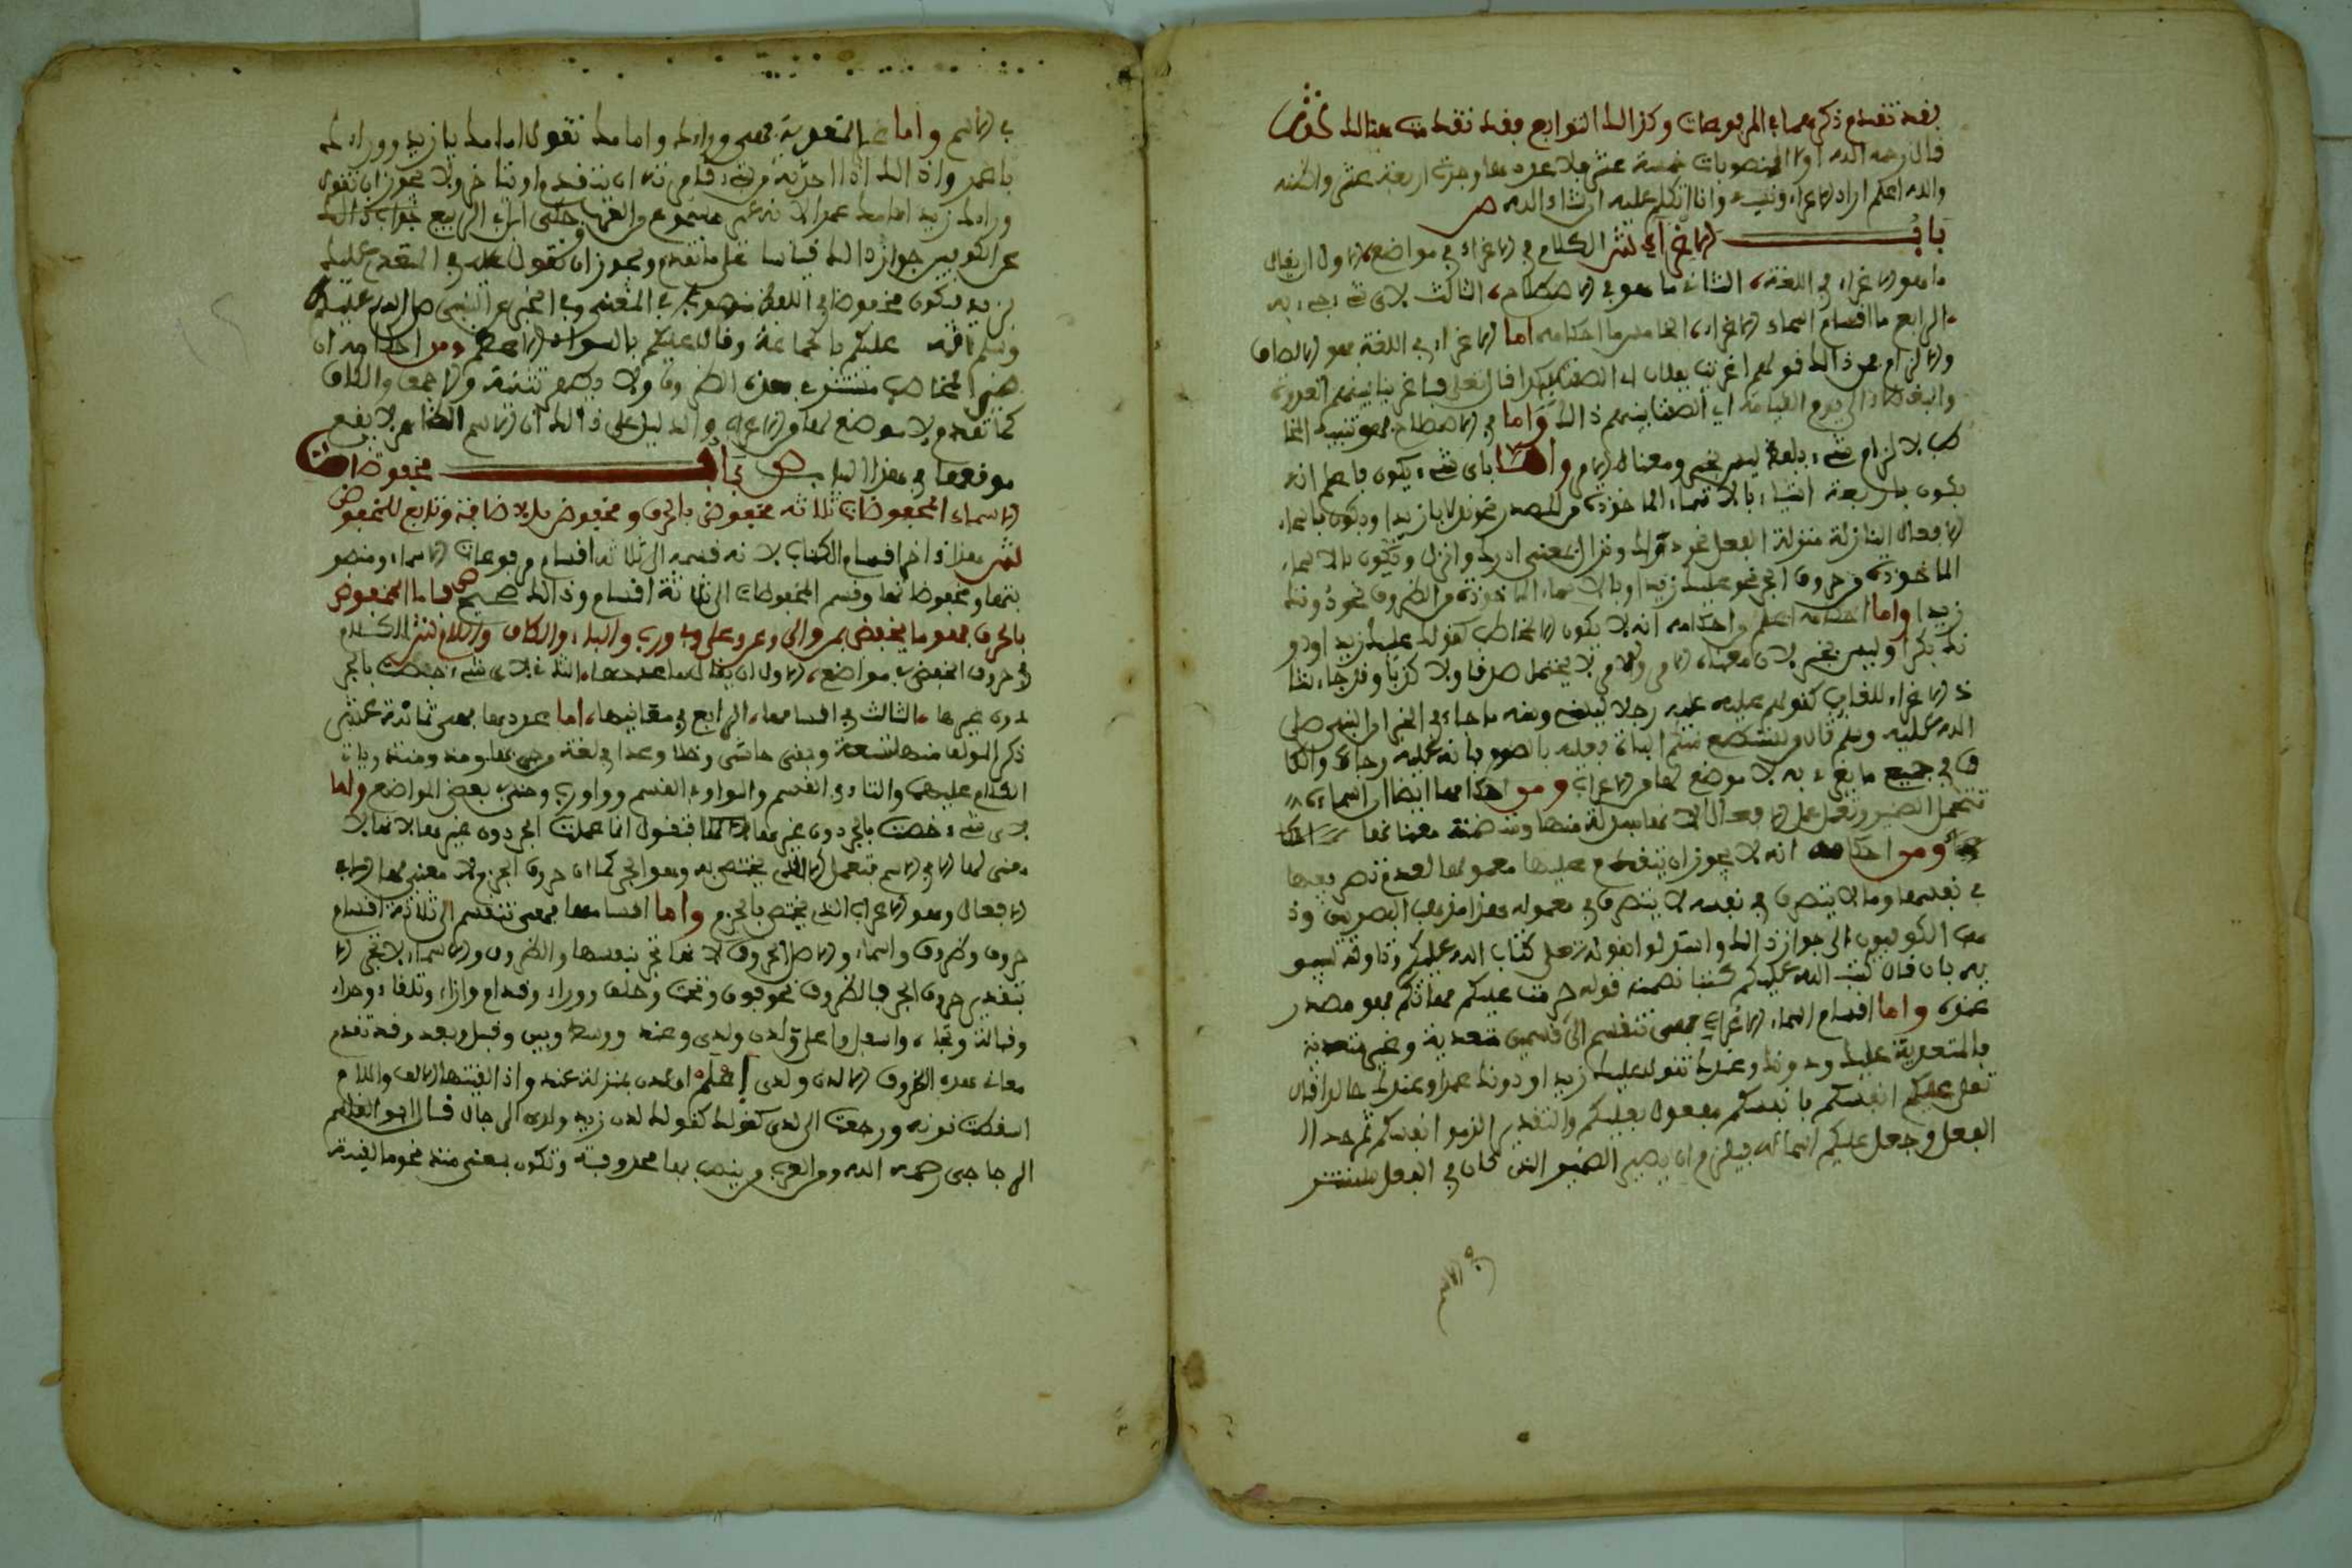 فقد تقدم ذكرهما في المرفوعات وكذالك التوابع فقد تقدمت هنالك ش
قال رحمه الله اولا المنصوبات خمسة عشر فلا عدد هاوجدت اربعة عشر ولاكنه
والله اعلم اراد الاغراء ونسيه وانا اتكلم عليه ان شاء الله
باب الاغراء ش الكلام في الاغراء في مواضع الاول ان يقال
ما هو الاغراء في اللغة، الثاني ما هو في الاصطلاح، الثالث لاي شيء جيء به
الرابع ما اقسام اسماء الاغراء، الخامس ما احكامه اما الاغراء في اللغة فهو الالصاق
والالزام من ذالك قولهم اغريت بفلان اي الصقته بكذا قال تعلى فاغرينا بينهم العداوة
والبغضاء الى يوم القيامة اي الصقنا بينهم ذالك واما في الاصطلاح فهو تنبيه المخا
طب لالزام شيء بلفظ ليس بخبر ومعناه الامر واما باي شيء يكون فاعلم انه
يكون باربعة اشياء بالاسماء الماخوذة من المصدر نحو بله يا زيدا ويكون باسماء
الافعال النازلة منزلة الفعل نحو دراك ونزال بمعنى ادرك وانزل ويكون بالاسماء
الماخوذة من حروف الجر نحو عليك زيدا وبالاسماء الماخوذة من الظروف نحو دونك
زيدا واما احكامه اعلم واحكامه انه لا يكون الا لمخاطب كقولك عليك زيد او دو
نك بكرا وليس بخبر لان معناه الامر والامر لا يحتمل صدقا ولا كذبا وقد جاء شا
ذ الاغراء للغايب كقولهم عليه رجلا ليسني ومنه ما جاء في الخبر ان النبي صلى
الله عليه وسلم قال ومن لم يستطع منكم الباءة فعليه بالصوم فانه عليه رجاء والكا
ف في جميع ما يغرى به لا موضع لها من الاعراب ومن احكامها ايضا ان اسماءه
تتحمل الضمير وتعمل عمل الافعال لانها بدلة منها ومتضمنة معناها
ومن احكامه انه لا يجوز ان يتقدم عليها معمولها لعدم تصرفها
في نفسها وما لا يتصرف في نفسه لا يتصرف في معموله وهذا مذهب البصريين وذ
هب الكوفيون الى جواز ذالك واستدلوا بقوله تعلى كتاب الله عليكم وتاوله سيبو
يه بان قال كتب الله عليكم كتابا تضمنه قوله حرمت عليكم امهاتكم فهو مصدر
عنده واما اقسام اسماء الاغراء فهي تنقسم الى قسمين متعدية وغير متعدية
فالمتعدية عليك ودونك وعندك تقول عليك زيدا ودونك عمرا وعندك خالدا قال
تعلى عليكم انفسكم فانفسكم مفعول بعليكم والتقدير الزموا انفسكم ثم حذف
الفعل وجعل عليكم اسما له فيلزم ان يصير الضمير الذي كان في الفعل مستتر
في الاسم
في الاسم واما غير المتعدية فهي وراءك وامامك تقول امامك يا زيد ووراءك
يا عمر واذالك اذا حذرته من شيء قدامه انه ان يتقدم او يتاخر ولا يجوز ان تقول
وراءك زيد امامك عمرا لانه غير مسموع من العرب حكى ابن ابي الربيع جواب ذالك
عن الكوفيين جواز ذالك قياسا على ما تقدم ويجوز ان تقول عليك في المتعدي عليك
بزيد فيكون مخفوضا في اللفظ منصوبا في المعنى وفي الخبر عن النبي صلى الله عليه
وسلم انه عليكم بالجماعة وقال عليكم بالسواد الاعظم ومن احكامه ان
ضمير المخاطب مستتر في هذه الظروف ولا يظهر تثنية ولا جمعا والكاف
كما تقدم لا موضع لها من الاعراب والدليل على ذالك ان الاسم الظاهر لا يقع
موقعها في هذا الباب ص باب مخفوضات
الاسماء المخفوضات ثلاثة مخفوض بالحرف ومخفوض بالاضافة وتابع للمخفوض
ش هذا اخر اقسام الكتاب لانه قسمه الى ثلاثة اقسام مرفوعات الاسماء ومنصو
بتها ومخفوضاتها وقسم المخفوضات الى ثلاثة اقسام وذالك صحيح ص فاما المخفوض
بالحرف فهو ما يخفض بمن والى وعن وعلى وفي ورب والباء والكاف واللام ش الكلام
في حروف الخفض في مواضع، الاول ان يقال ما عددها، الثاني لاي شيء خفضت بالجر
دون غيرها، الثالث في اقسامها، الرابع في معانيها، اما عددها فهي ثمانية عشر
ذكر المولف منها تسعة وبقي حاشى وخلا وعدا في لغة من جر بها ومذ ومنذ وياتي
الكلام عليهما والتاء في القسم والواو في القسم وواو رب وحتى في بعض المواضع واما
لاي شيء خصت بالجر دون غيرها فتقول انما عملت الجر دون غيرها لانها لا
معنى لها الا في الاسم فتعمل الاعراب الذي يختص به وهو الجر كما ان حروف الجزم لا معنى لها الا في
الافعال وهو الاعراب الذي يختص بالجزم واما اقسامها فهي تنقسم الى ثلاثة اقسام
حروف وظروف واسماء والاصل الحروف لانها تجر بنفسها والظروف والاسماء لا تجر الا
بتقدير حروف الجر فالظروف نحو فوق وتحت وخلف ووراء وقدام وازاء وتلقاء وحذاء
وقبالة وتجاه واسفل واعلى ولدن ولدى وعند ووسط وبين وقبل وبعد وقد تقدم
معاني هذه الظروف الا لدن ولدى اعلم ان لدن بمنزلة عند واذا لقيتها الالف واللام
اسقطت نونه ورجعت الى لدى كقولك كقولك لدن زيد ولدى الرجال قال ابو القاسم
الزجاجي رحمه الله ومن العرب من ينصب بها محذوفته وتكون بمعنى منذ نحو ما لقيته